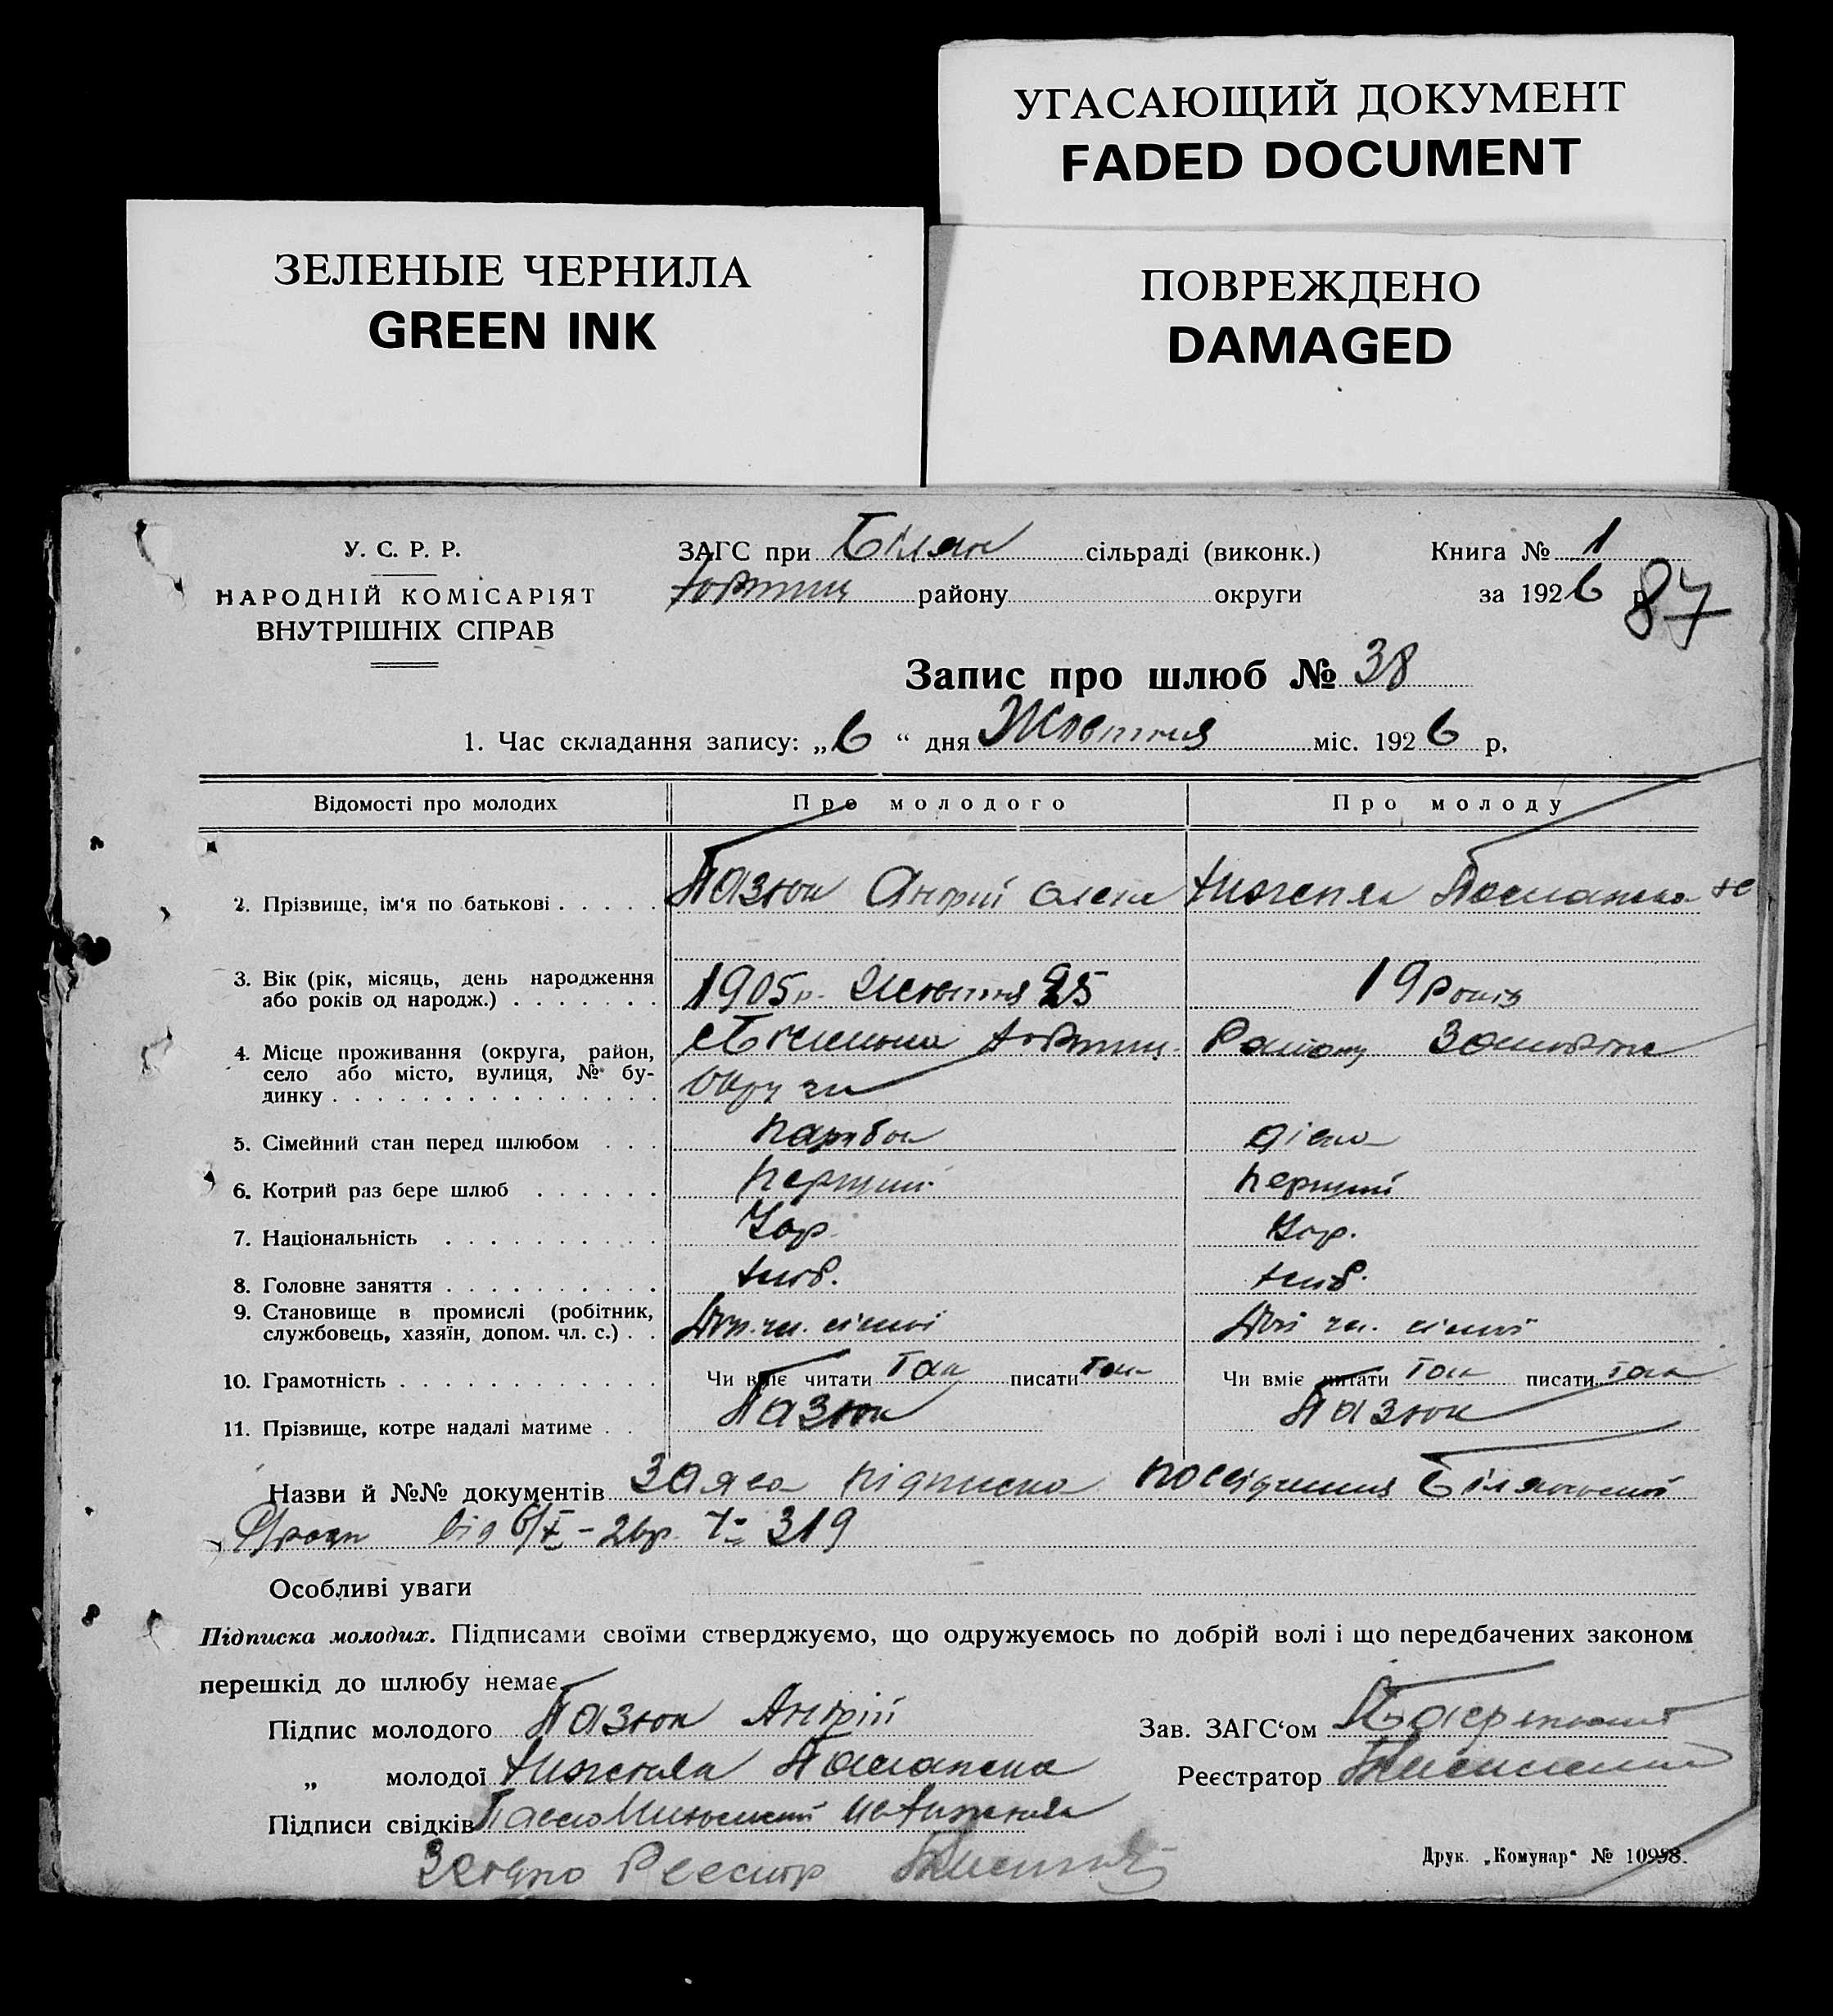 УГАСАЮЩИЙ ДОКУМЕНТ
FADED DOCUMENT
ЗЕЛЕНЫЕ ЧЕРНИЛА
GREEN INK
ПОВРЕЖДЕНО
DAMAGED
У. С. Р. Р.
НАРОДНІЙ КОМІСАРІЯТ
ВНУТРІШНІХ СПРАВ
ЗАГС при Білян сільраді (виконк.)
району округи
Книга № 1
за 1926 р.
87
Запис про шлюб № 38
1. Час складання запису: „6“ дня Жовтня міс. 1926 р.
Відомості про молодих Про молодого Про молоду
2. Прізвище, ім'я по батькові Пазюк Андрій
3. Вік (рік, місяць, день народження або років од народж.) 1905 р. Жовтня 25 19 років
4. Місце проживання (округа, район, село або місто, вулиця, № будинку Округи Району
5. Сімейний стан перед шлюбом парубок дівка
6. Котрий раз бере шлюб перший перший
7. Національність Укр. Укр.
8. Головне заняття хліб. хліб.
9. Становище в промислі (робітник, службовець, хазяїн, допом. чл. с.) Доп. чл. сімї Доп чл. сімї
10. Грамотність Чи вміє читати Так писати Так Чи вміє читати Так писати так
11. Прізвище, котре надалі матиме Пазюк Пазюк
Назви й №№ документів Заява підписка посвідчення Білянської
С/ради від 6/X - 26р. № 319
Особливі уваги
Підписка молодих. Підписами своїми стверджуємо, що одружуємось по добрій волі і що передбачених законом
перешкід до шлюбу немає
Підпис молодого Пазюк Андрій
Зав. ЗАГС'ом
„ молодої
Реєстратор
Підписи свідків
Згідно Реєстр
Друк. „Комунар“ № 10958.